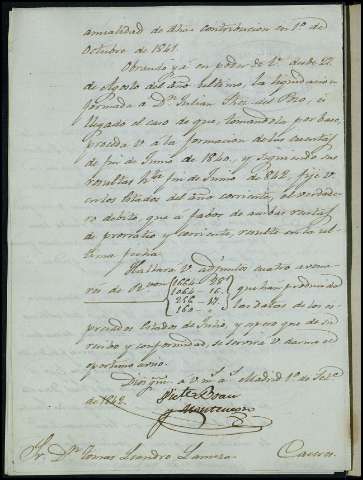 anualidad de dha. contribucion en 1º de
Octubre de 1841.
Obrando ya en poder de V. desde 27
de Agosto del año ultimo, la liquidacion
formada a Dn. Julian del Pozo, es
llegado el caso de que, tomandola por base,
proceda V. a la formacion de las cuentas
de fin de Junio de 1840, y siguiendo sus
resultas hta. fin de Junio de 842, fije V.
en los Estados del año corriente, el verdade-
ro debito, que a fabor de ambas rentas
de prorratio y corriente, resulte en la ul-
tima fecha.
Hallara V. adjuntos cuatro
de Rs. von 1664 - 28
1064 - 16
256 - 17
160 - "
que han producido
las datas de los es-
presados Estados de Julio, y espero que de su
recibo y conformidad, se servira V. darme el
oportuno aviso.
Dios gue. a V. ms. as. Madrid 1º de
de 1842.
Sr. Dn. Tomas Leandro